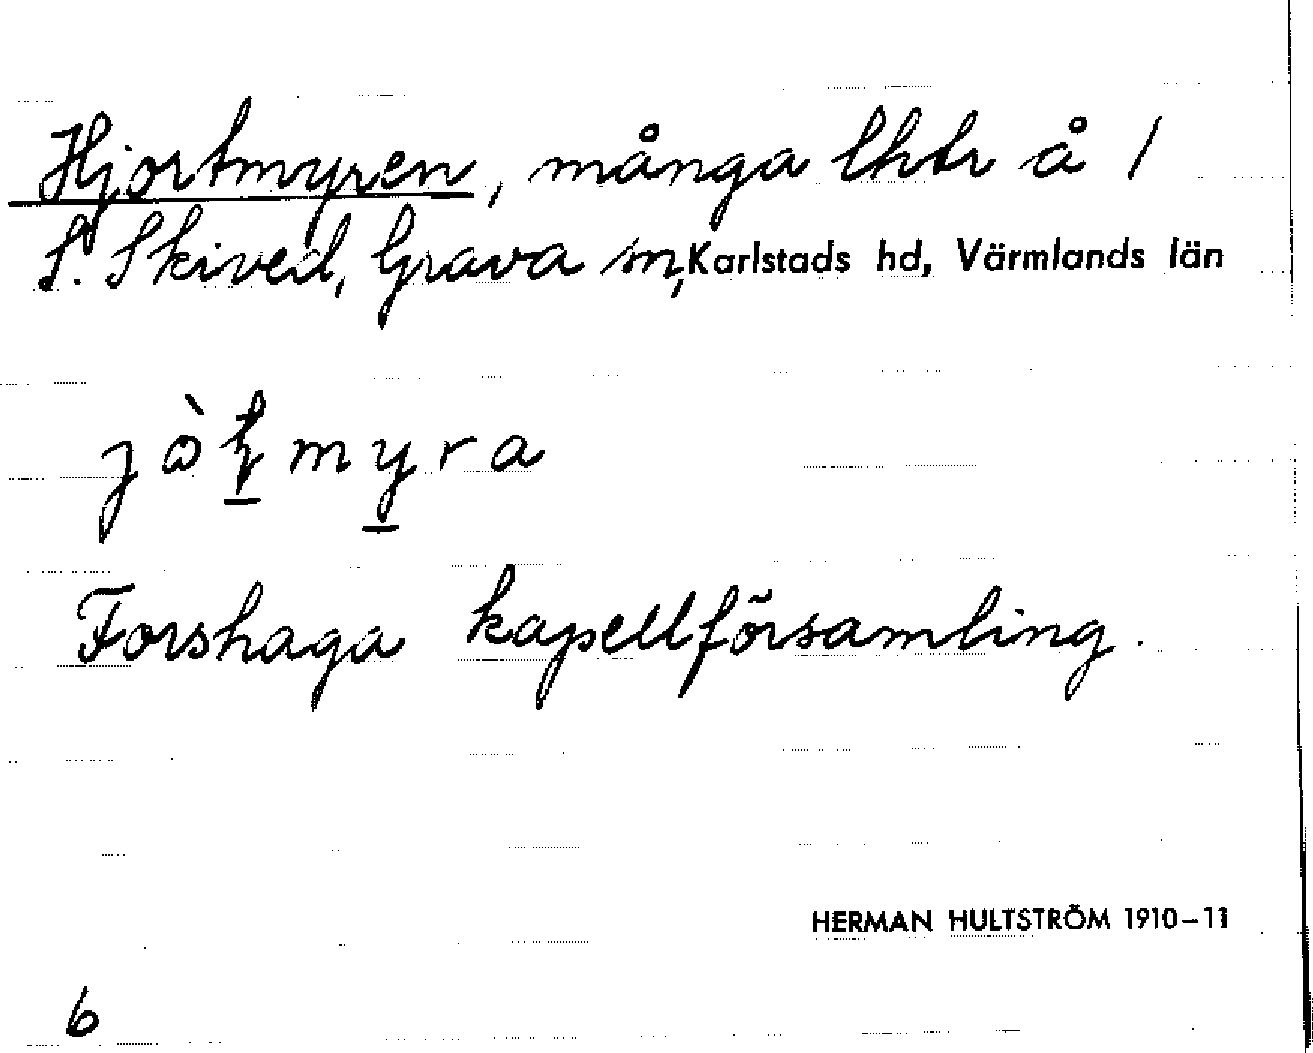 Hjortmyren, många lhtr å /
S. Skived, Grava sn, Karlstads hd, Värmlands län
Forshaga kapellförsamling.
HERMAN HULTSTRÖM 1910–11
6